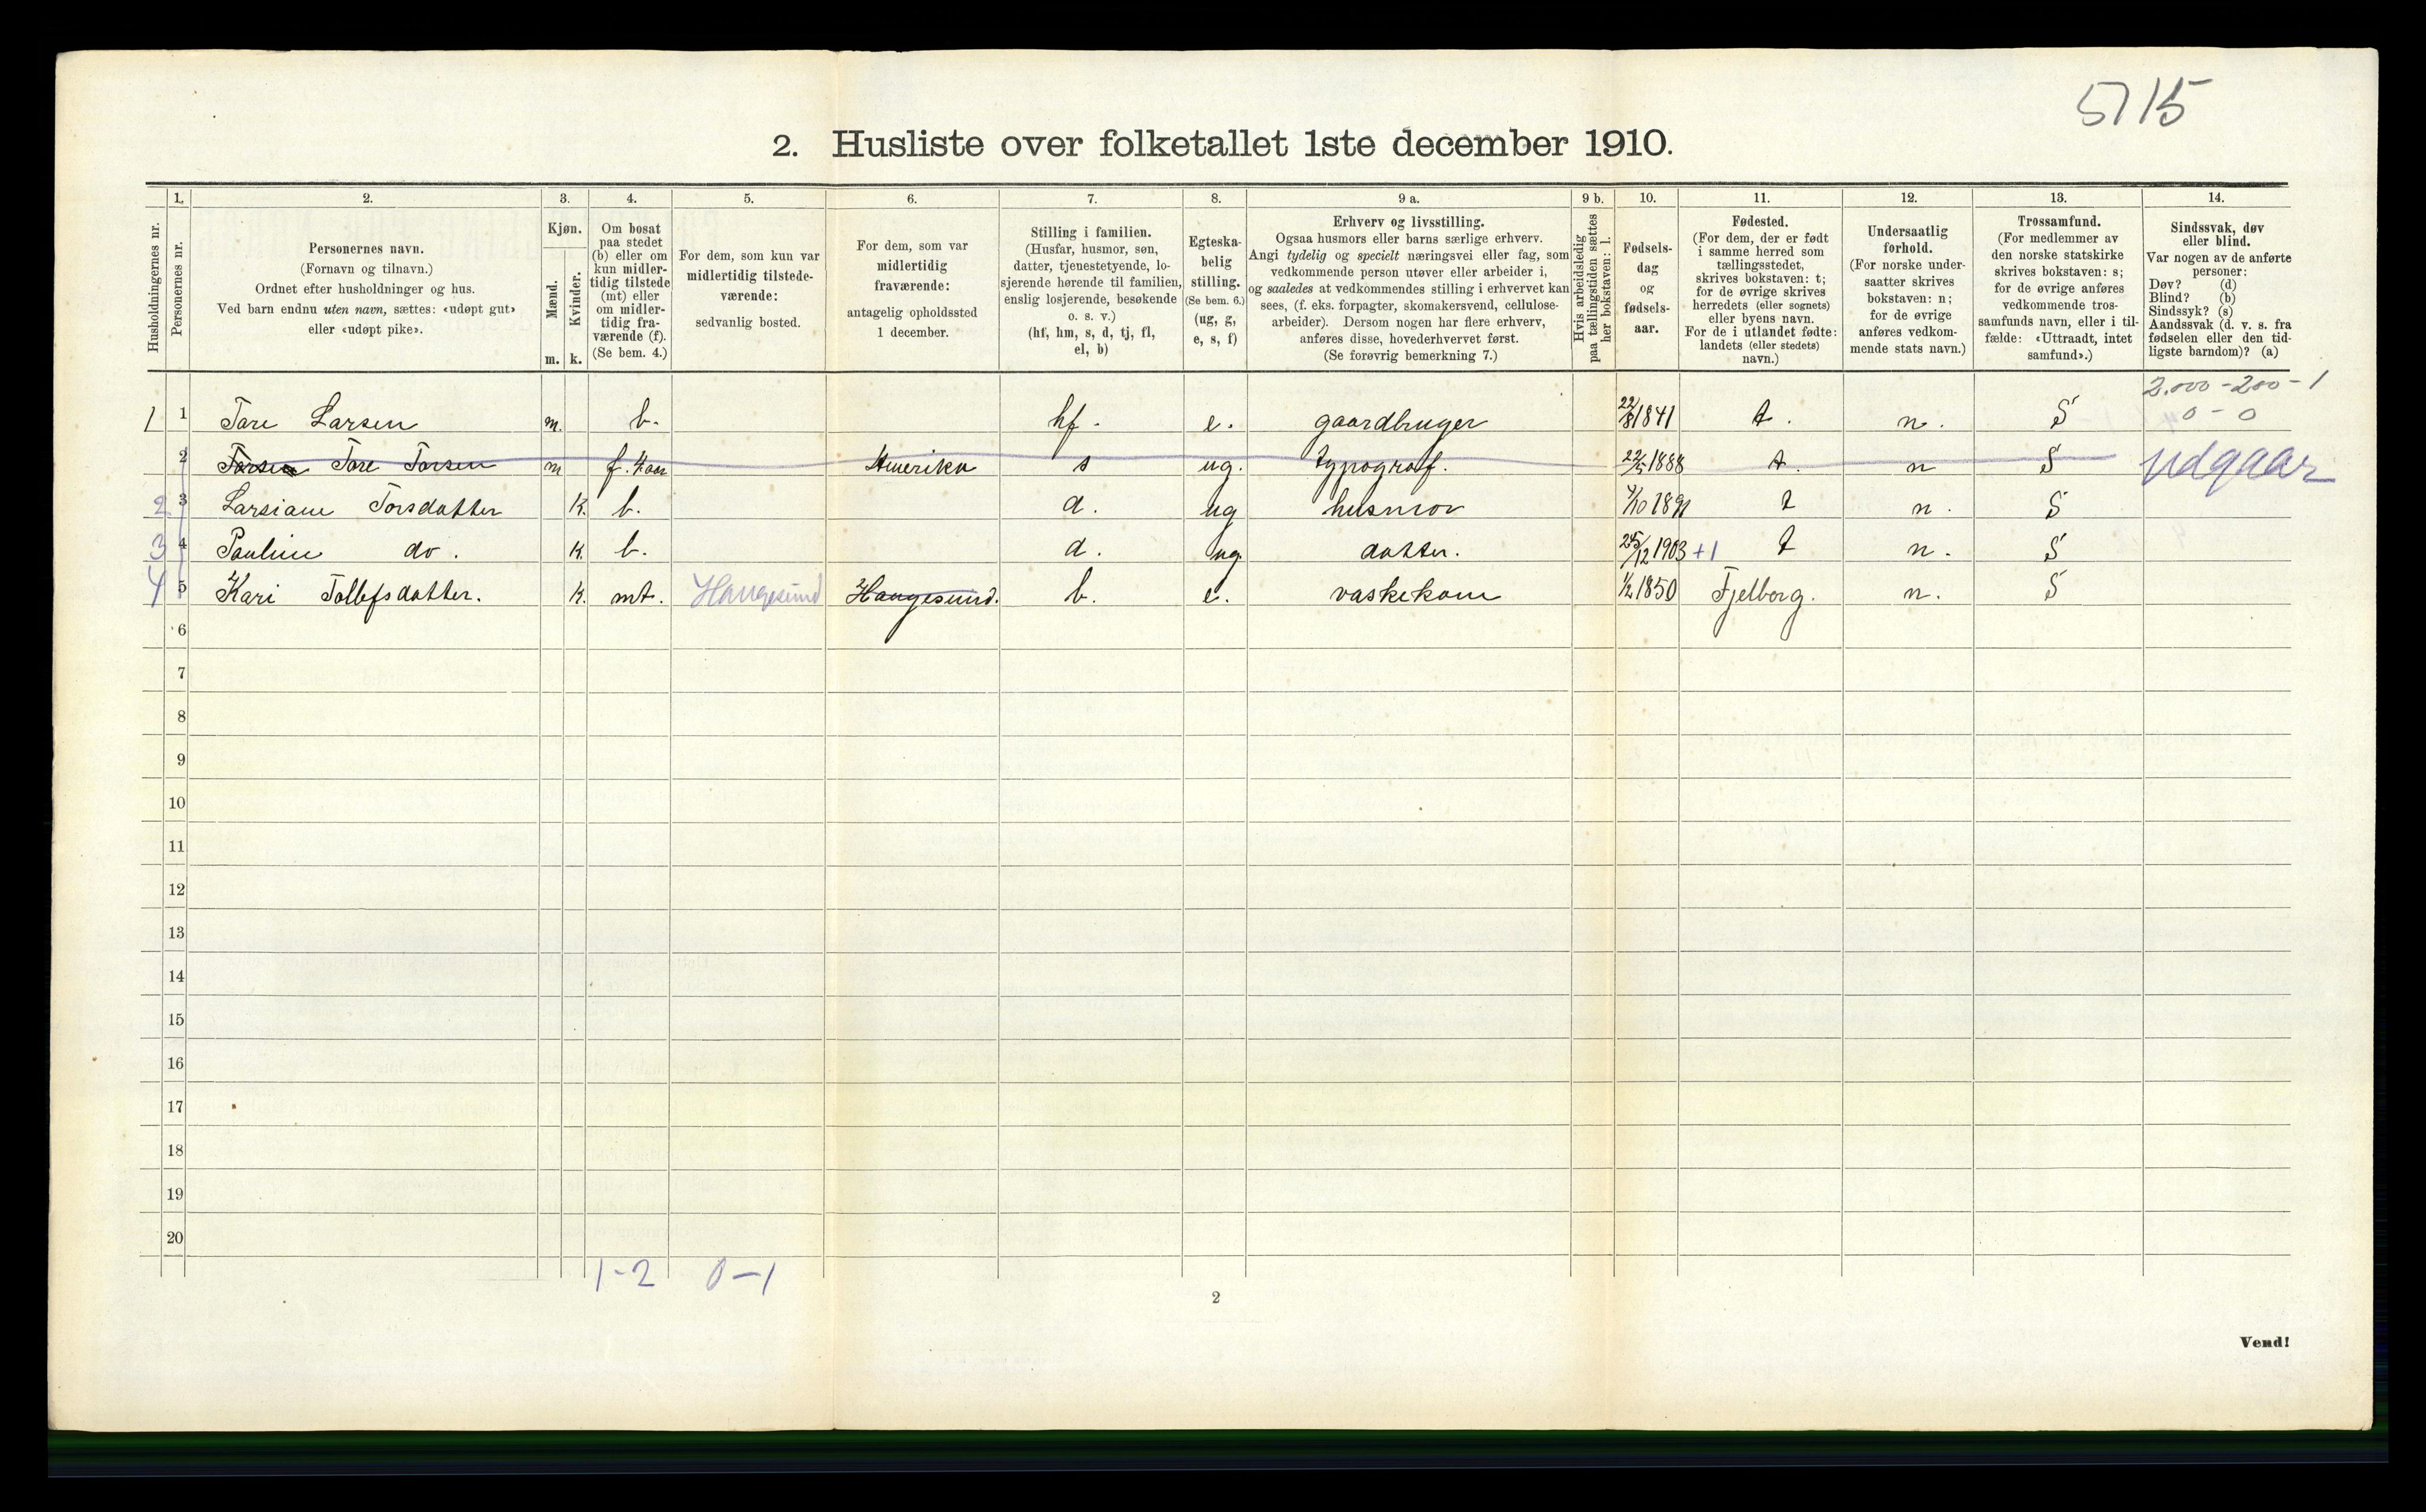 5715
2. Husliste over folketallet 1ste december 1910.
1. 2. 3. 4. 5. 6. 7. 8. 9 a. 9 b. 10. 11. 12. 13. 14.
Husholdningernes nr.
Personernes nr.
Personernes navn.
(Fornavn og tilnavn.)
Ordnet efter husholdninger og hus.
Ved barn endnu uten navn, sættes: «udøpt gut»
eller «udøpt pike».
Kjøn.
Mænd.
Kvinder.
m. k.
Om bosat
paa stedet
(b) eller om
kun midler-
tidig tilstede
(mt) eller
om midler-
tidig fra-
værende (f).
(Se bem. 4.)
For dem, som kun var
midlertidig tilstede-
værende:
sedvanlig bosted.
For dem, som var
midlertidig
fraværende:
antagelig opholdssted
1 december.
Stilling i familien.
(Husfar, husmor, søn,
datter, tjenestetyende, lo-
sjerende hørende til familien,
enslig losjerende, besøkende
o. s. v.)
(hf, hm, s, d, tj, fl,
el, b)
Egteska-
belig
stilling.
(Se bem. 6.)
(ug, g,
e, s, f)
Erhverv og livsstilling.
Ogsaa husmors eller barns særlige erhverv.
Angi tydelig og specielt næringsvei eller fag, som
vedkommende person utøver eller arbeider i,
og saaledes at vedkommendes stilling i erhvervet kan
sees, (f. eks. forpagter, skomakersvend, cellulose-
arbeider). Dersom nogen har flere erhverv,
anføres disse, hovederhvervet først.
(Se forøvrig bemerkning 7.)
Hvis arbeidsledig
paa tællingstiden sættes
her bokstaven: l.
Fødsels-
dag
og
fødsels-
aar.
Fødested.
(For dem, der er født
i samme herred som
tællingsstedet,
skrives bokstaven: t;
for de øvrige skrives
herredets (eller sognets)
eller byens navn.
For de i utlandet fødte:
landets (eller stedets)
navn.)
Undersaatlig
forhold.
(For norske under-
saatter skrives
bokstaven: n;
for de øvrige
anføres vedkom-
mende stats navn.)
Trossamfund.
(For medlemmer av
den norske statskirke
skrives bokstaven: s;
for de øvrige anføres
vedkommende tros-
samfunds navn, eller i til-
fælde: «Uttraadt, intet
samfund».)
Sindssvak, døv
eller blind.
Var nogen av de anførte
personer:
Døv? (d)
Blind? (b)
Sindssyk? (s)
Aandssvak (d. v. s. fra
fødselen eller den tid-
ligste barndom)? (a)
2.000 - 200 - 1
1 1 Tore Larsen m. b. hf. e. gaardbruger 22/8 1841 t. n. S 0 - 0
2 Torsen Tore Torsen m f. Amerika s ug. typograf. 22/5 1888 t. n S udgaar
2 3 Larsiane Torsdatter K. b. d. ug husmor 4/10 1891 t n. S
3 4 Pauline do. K. b. d. ug. datter. 25/12 1903 +1 t n. S
4 5 Kari Tollefsdatter. K. mt. Haugesund Haugesund. b. e. vaskekone 1/2 1850 Fjelberg. n. S
6
7
8
9
10
11
12
13
14
15
16
17
18
19
20
1-2 0-1
2
Vend!